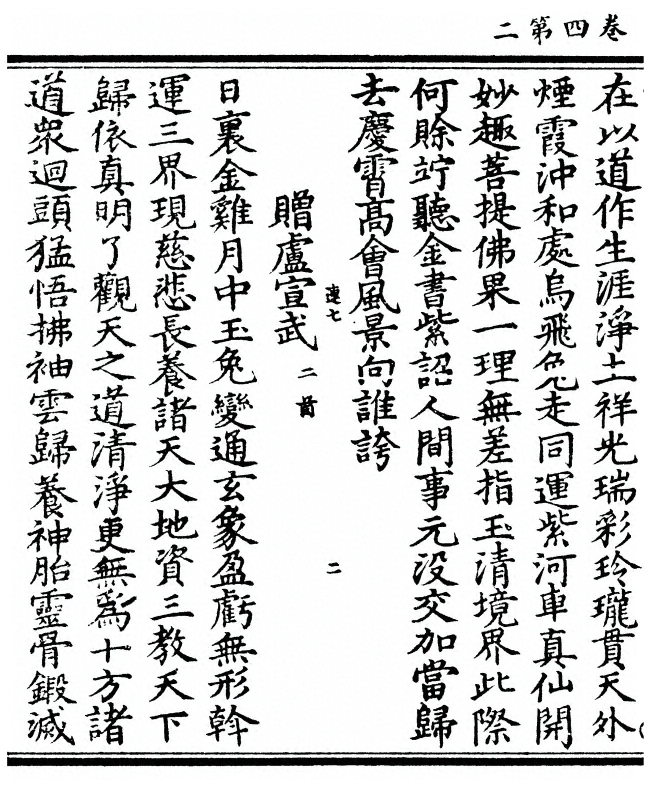 卷四第二
在以道作生涯淨土祥光瑞彩玲瓏貫天外
煙霞沖和處烏飛兔走同運紫河車真仙開
妙趣菩提佛果一理無差指玉清境界此際
何賒竚聽金書紫詔人間事元没交加當歸
去慶霄高會風景向誰誇
贈盧宣武二首
連七
二
日裏金雞月中玉兔變通玄象盈虧無形斡
運三界現慈悲長養諸天大地資三教天下
歸依真明了觀天之道清淨更無爲十方諸
道衆迴頭猛悟拂袖雲歸養神胎靈骨鍛滅